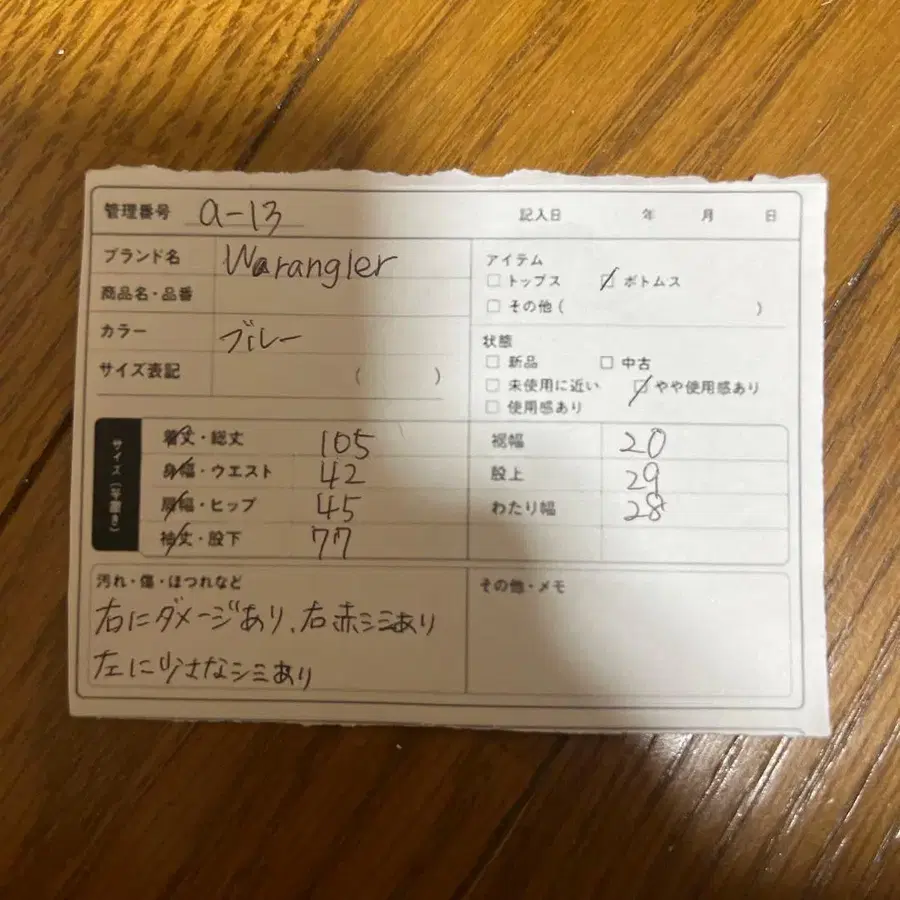 管理番号 a-13 記入日 年 月 日
ブランド名 Warangler
商品名・品番
カラー ブルー
サイズ表記 ( )
アイテム
□ トップス □ ボトムス
□ その他 ( )
状態
□ 新品 □ 中古
□ 未使用に近い □ やや使用感あり
□ 使用感あり
サイズ(平置き)
着丈・総丈 105
身幅・ウエスト 42
肩幅・ヒップ 45
袖丈・股下 77
裾幅 20
股上 29
わたり幅 28
汚れ・傷・ほつれなど
右にダメージあり、右赤シミあり
左に小さなシミあり
その他・メモ